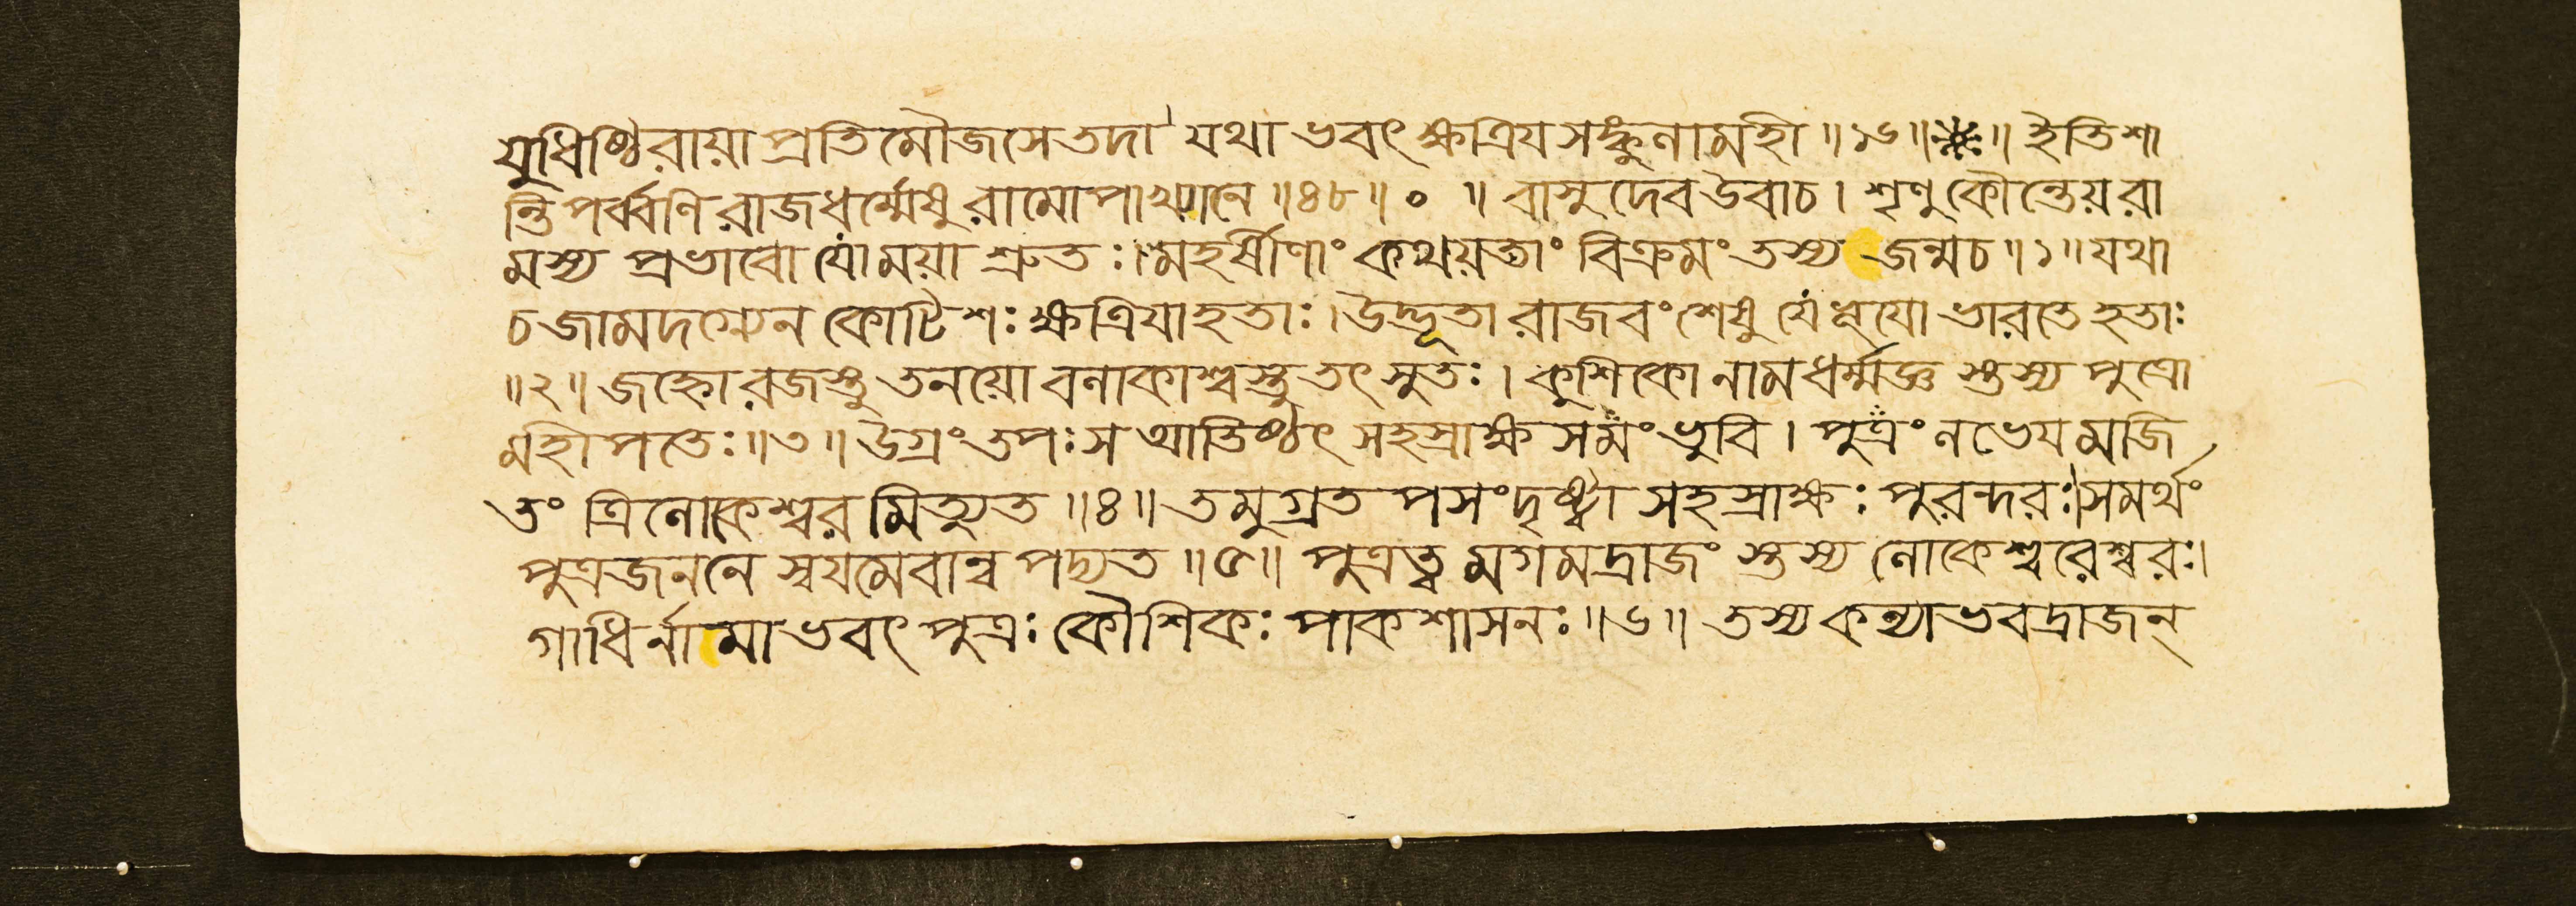 যুধিষ্ঠিরায়া প্রতিমৌজসে তদা যথা ভবৎ ক্ষত্রিয সঙ্কুনা মহী ॥ ১৬ ॥ ※ ॥ ইতি শা
ন্তি পর্ব্বণি রাজধর্ম্মেষু রামোপাখ্যানে ॥ ৪৮ ॥ ० ॥ বাসুদেব উবাচ । শৃণু কৌন্তেয় রা
মস্য প্রভাবো যো ময়া শ্রুতঃ । মহর্ষীণাং কথয়তাং বিক্রমং তস্য জন্ম চ ॥ ১ ॥ যথা
চ জামদগ্ন্যেন কোটিশঃ ক্ষত্রিযা হতাঃ । উদ্ভূতা রাজবংশেষু যে ভূযো ভারতে হতাঃ
॥ ২ ॥ জহ্নোরজস্তু তনয়ো বনাকাশ্বস্তু তৎ সুতঃ । কুশিকো নাম ধর্ম্মজ্ঞ স্তস্য পুত্রো
মহীপতেঃ ॥ ৩ ॥ উগ্রং তপঃ স আতিষ্ঠৎ সহস্রাক্ষ সমং ভুবি । পুত্রং নভেয মজি
তং ত্রিনোকেশ্বর মিত্যুত ॥ ৪ ॥ তমুগ্রত পসং দৃষ্ট্বা সহস্রাক্ষঃ পুরন্দরঃ । সমর্থং
পুত্রজননে স্বযমেবান্ব পদ্যত ॥ ৫ ॥ পুত্রত্ব মগমদ্রাজং স্তস্য নোকেশ্বরেশ্বরঃ ।
গাধির্নামা ভবৎ পুত্রঃ কৌশিকঃ পাকশাসনঃ ॥ ৬ ॥ তস্য কন্যা ভবদ্রাজন্